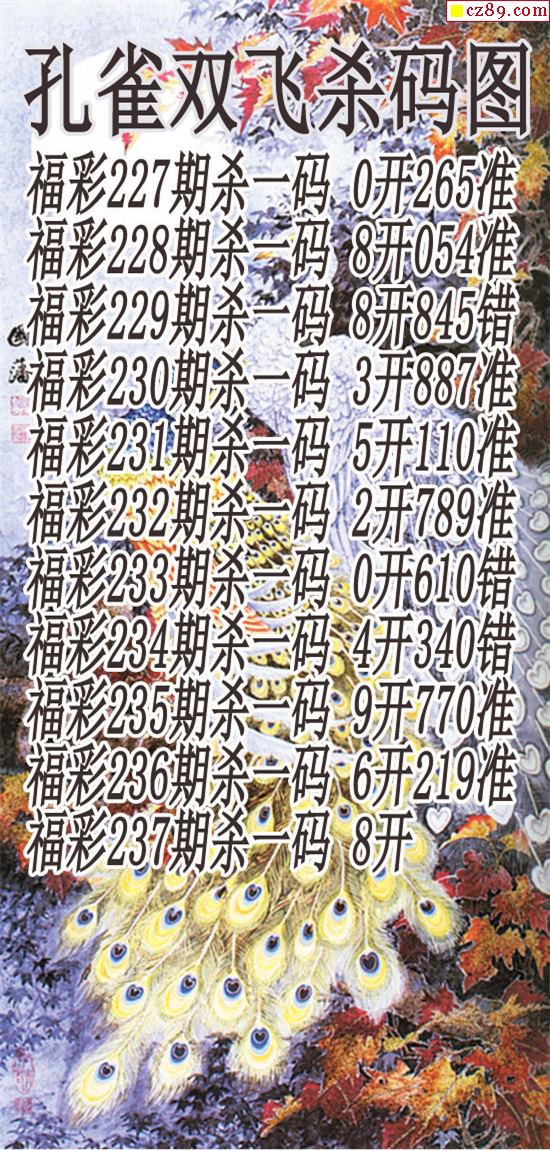 cz89.com
孔雀双飞杀码图
福彩227期杀一码 0开265准
福彩228期杀一码 8开054准
福彩229期杀一码 8开845错
福彩230期杀一码 3开887准
福彩231期杀一码 5开110准
福彩232期杀一码 2开789准
福彩233期杀一码 0开610错
福彩234期杀一码 4开340错
福彩235期杀一码 9开770准
福彩236期杀一码 6开219准
福彩237期杀一码 8开